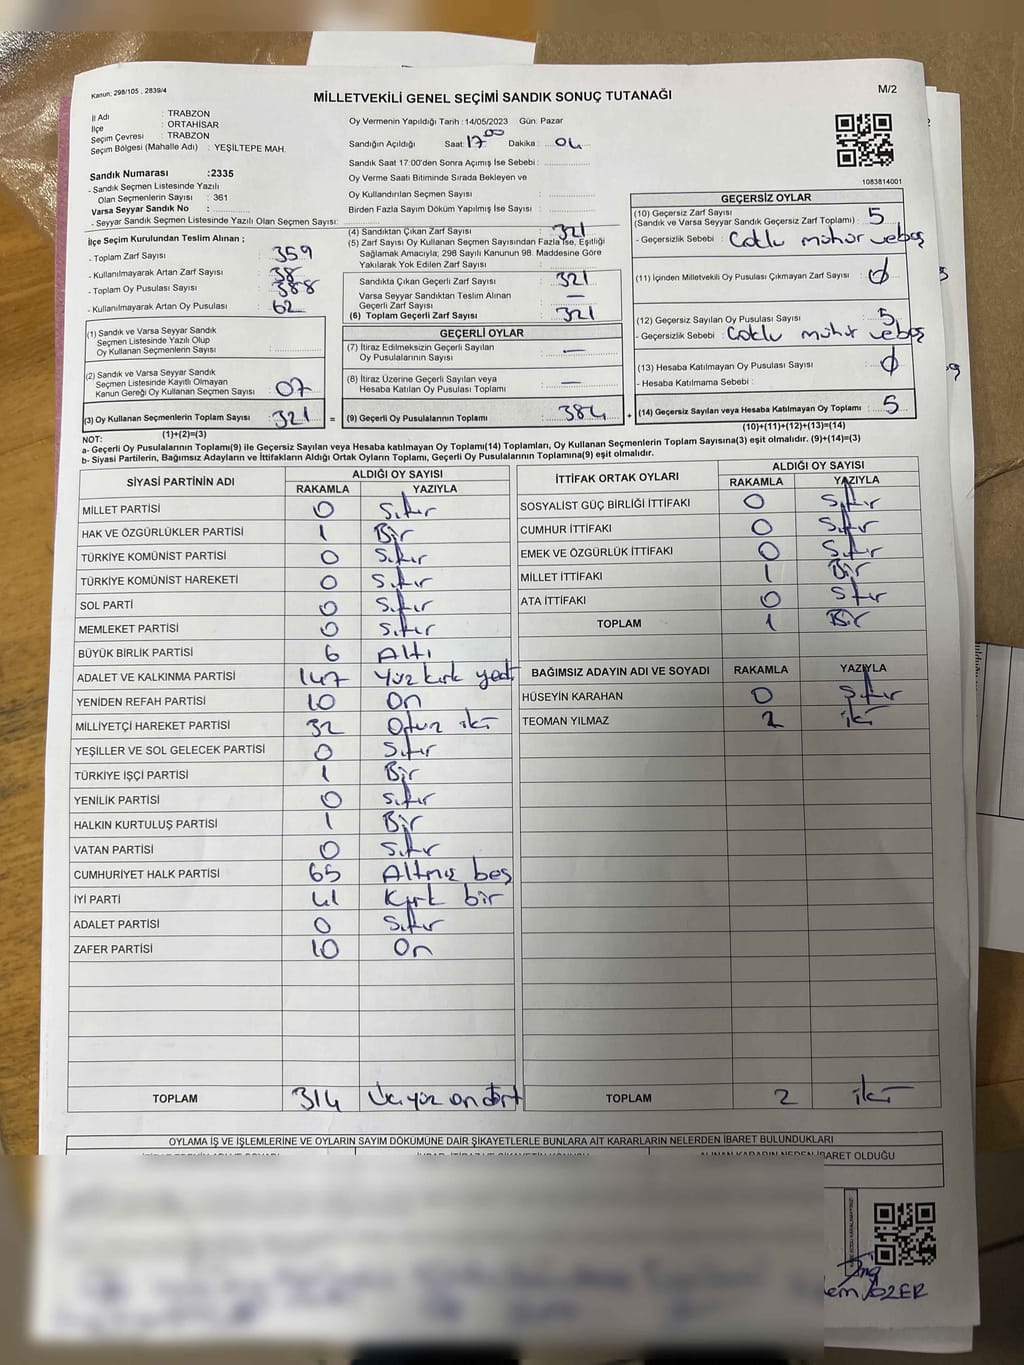 Kanun; 298/105 , 2839/4
M/2
MİLLETVEKİLİ GENEL SEÇİMİ SANDIK SONUÇ TUTANAĞI
İl Adı : TRABZON
İlçe : ORTAHİSAR
Seçim Çevresi : TRABZON
Seçim Bölgesi (Mahalle Adı) : YEŞİLTEPE MAH.
Oy Vermenin Yapıldığı Tarih :14/05/2023 Gün: Pazar
Sandığın Açıldığı Saat: 17 00 Dakika : 04
Sandık Saat 17:00'den Sonra Açımış İse Sebebi :
Oy Verme Saati Bitiminde Sırada Bekleyen ve
Oy Kullandırılan Seçmen Sayısı :
Birden Fazla Sayım Döküm Yapılmış İse Sayısı :
1083814001
Sandık Numarası :2335
- Sandık Seçmen Listesinde Yazılı
Olan Seçmenlerin Sayısı : 361
Varsa Seyyar Sandık No :
- Seyyar Sandık Seçmen Listesinde Yazılı Olan Seçmen Sayısı:
İlçe Seçim Kurulundan Teslim Alınan ;
- Toplam Zarf Sayısı : 359
- Kullanılmayarak Artan Zarf Sayısı : 38
- Toplam Oy Pusulası Sayısı : 388
- Kullanılmayarak Artan Oy Pusulası : 62
(1) Sandık ve Varsa Seyyar Sandık
Seçmen Listesinde Yazılı Olup
Oy Kullanan Seçmenlerin Sayısı :
(2) Sandık ve Varsa Seyyar Sandık
Seçmen Listesinde Kayıtlı Olmayan
Kanun Gereği Oy Kullanan Seçmen Sayısı : 07
(3) Oy Kullanan Seçmenlerin Toplam Sayısı : 321 =
(1)+(2)=(3)
(4) Sandıktan Çıkan Zarf Sayısı : 321
(5) Zarf Sayısı Oy Kullanan Seçmen Sayısından Fazla İse, Eşitliği
Sağlamak Amacıyla; 298 Sayılı Kanunun 98. Maddesine Göre
Yakılarak Yok Edilen Zarf Sayısı :
Sandıkta Çıkan Geçerli Zarf Sayısı : 321
Varsa Seyyar Sandıktan Teslim Alınan
Geçerli Zarf Sayısı : —
(6) Toplam Geçerli Zarf Sayısı : 321
GEÇERLİ OYLAR
(7) İtiraz Edilmeksizin Geçerli Sayılan
Oy Pusulalarının Sayısı : —
(8) İtiraz Üzerine Geçerli Sayılan veya
Hesaba Katılan Oy Pusulası Toplamı : —
(9) Geçerli Oy Pusulalarının Toplamı : 384 +
GEÇERSİZ OYLAR
(10) Geçersiz Zarf Sayısı
(Sandık ve Varsa Seyyar Sandık Geçersiz Zarf Toplamı) : 5
- Geçersizlik Sebebi : Çoklu mühür ve boş
(11) İçinden Milletvekili Oy Pusulası Çıkmayan Zarf Sayısı : Ø
(12) Geçersiz Sayılan Oy Pusulası Sayısı : 5
- Geçersizlik Sebebi : Çoklu mühür ve boş
(13) Hesaba Katılmayan Oy Pusulası Sayısı : Ø
- Hesaba Katılmama Sebebi :
(14) Geçersiz Sayılan veya Hesaba Katılmayan Oy Toplamı : 5
(10)+(11)+(12)+(13)=(14)
NOT:
a- Geçerli Oy Pusulalarının Toplamı(9) ile Geçersiz Sayılan veya Hesaba katılmayan Oy Toplamı(14) Toplamları, Oy Kullanan Seçmenlerin Toplam Sayısına(3) eşit olmalıdır. (9)+(14)=(3)
b- Siyasi Partilerin, Bağımsız Adayların ve İttifakların Aldığı Ortak Oyların Toplamı, Geçerli Oy Pusulalarının Toplamına(9) eşit olmalıdır.
SİYASİ PARTİNİN ADI ALDIĞI OY SAYISI
RAKAMLA YAZIYLA
MİLLET PARTİSİ 0 Sıfır
HAK VE ÖZGÜRLÜKLER PARTİSİ 1 Bir
TÜRKİYE KOMÜNİST PARTİSİ 0 Sıfır
TÜRKİYE KOMÜNİST HAREKETİ 0 Sıfır
SOL PARTİ 0 Sıfır
MEMLEKET PARTİSİ 0 Sıfır
BÜYÜK BİRLİK PARTİSİ 6 Altı
ADALET VE KALKINMA PARTİSİ 147 Yüz kırk yedi
YENİDEN REFAH PARTİSİ 10 On
MİLLİYETÇİ HAREKET PARTİSİ 32 Otuz iki
YEŞİLLER VE SOL GELECEK PARTİSİ 0 Sıfır
TÜRKİYE İŞÇİ PARTİSİ 1 Bir
YENİLİK PARTİSİ 0 Sıfır
HALKIN KURTULUŞ PARTİSİ 1 Bir
VATAN PARTİSİ 0 Sıfır
CUMHURİYET HALK PARTİSİ 65 Altmış beş
İYİ PARTİ 41 Kırk bir
ADALET PARTİSİ 0 Sıfır
ZAFER PARTİSİ 10 On
TOPLAM 314 Üçyüz on dört
İTTİFAK ORTAK OYLARI ALDIĞI OY SAYISI
RAKAMLA YAZIYLA
SOSYALİST GÜÇ BİRLİĞİ İTTİFAKI 0 Sıfır
CUMHUR İTTİFAKI 0 Sıfır
EMEK VE ÖZGÜRLÜK İTTİFAKI 0 Sıfır
MİLLET İTTİFAKI 1 Bir
ATA İTTİFAKI 0 Sıfır
TOPLAM 1 Bir
BAĞIMSIZ ADAYIN ADI VE SOYADI RAKAMLA YAZIYLA
HÜSEYİN KARAHAN 0 Sıfır
TEOMAN YILMAZ 2 iki
TOPLAM 2 iki
OYLAMA İŞ VE İŞLEMLERİNE VE OYLARIN SAYIM DÖKÜMÜNE DAİR ŞİKAYETLERLE BUNLARA AİT KARARLARIN NELERDEN İBARET BULUNDUKLARI
ALINAN KARARIN NEDEN İBARET OLDUĞU
ÖZER